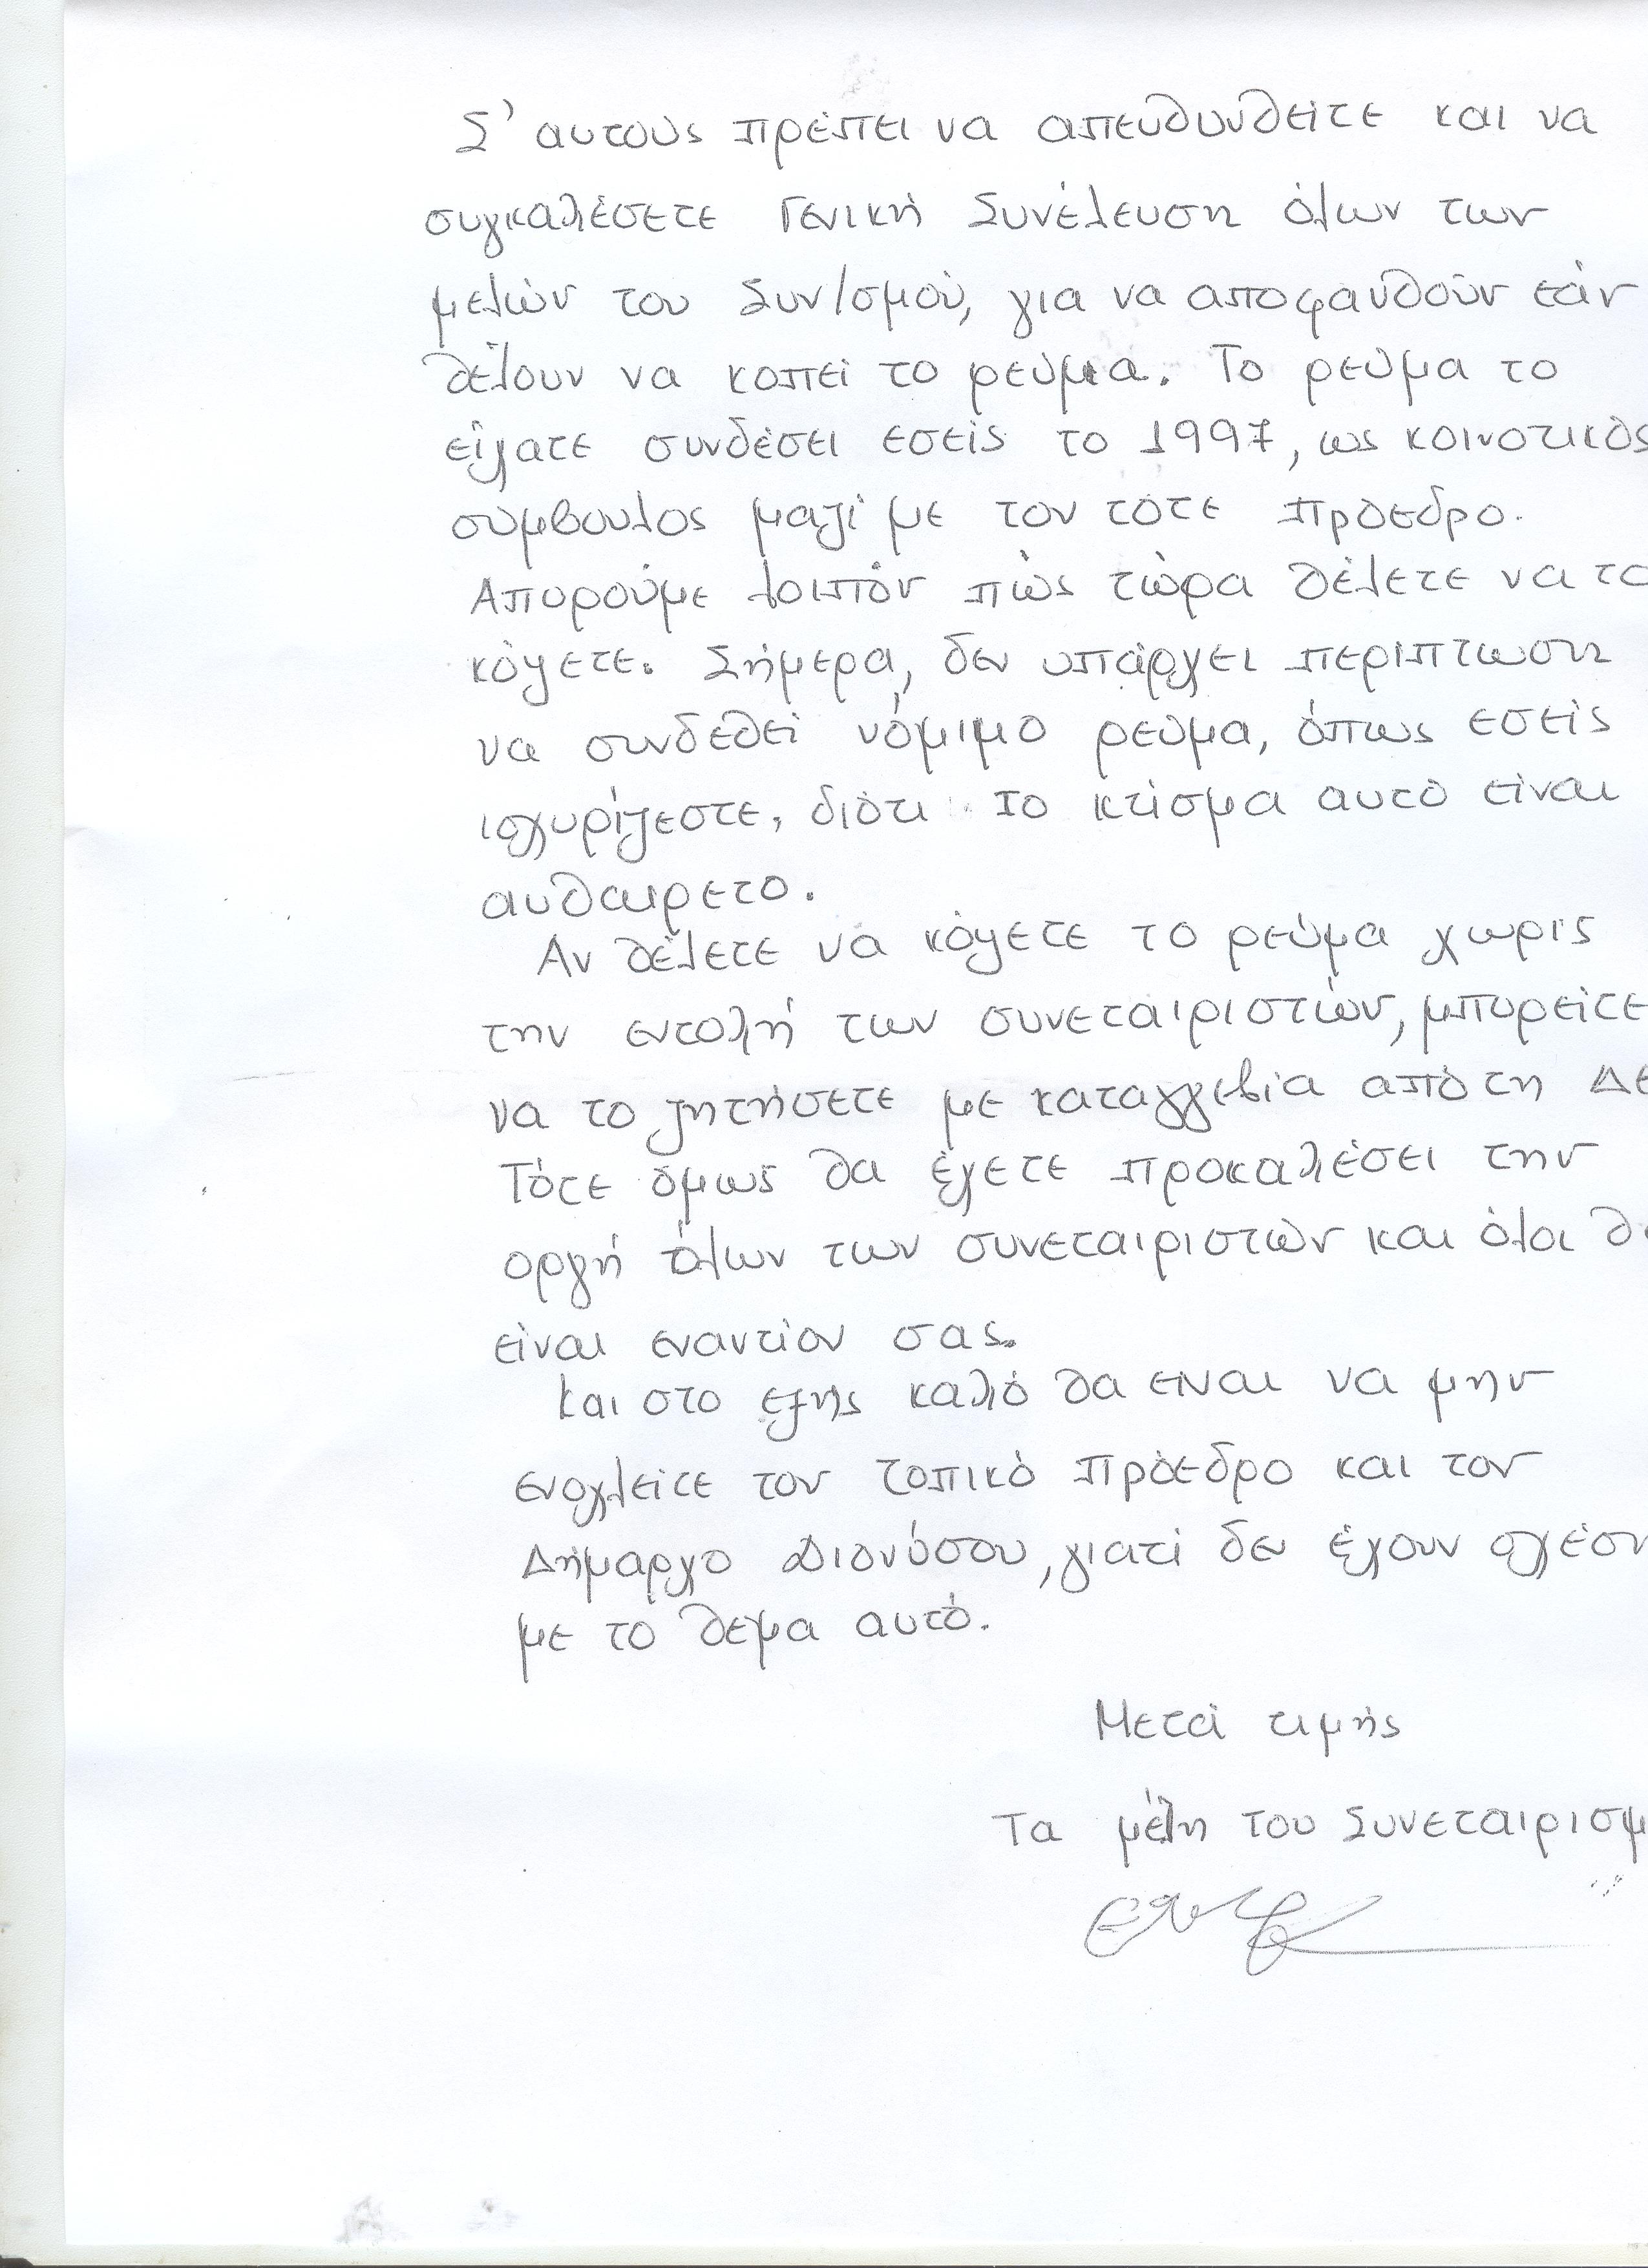 Σ' αυτούς πρέπει να απευθυνθείτε και να
συγκαλέσετε Γενική Συνέλευση όλων των
μελών του Συν/σμού, για να αποφανθούν εάν
θέλουν να κοπεί το ρεύμα. Το ρεύμα το
είχατε συνδέσει εσείς το 1997, ως κοινοτικός
σύμβουλος μαζί με τον τότε Πρόεδρο.
Απορούμε λοιπόν πώς τώρα θέλετε να το
κόψετε. Σήμερα, δεν υπάρχει περίπτωση
να συνδεθεί νόμιμο ρεύμα, όπως εσείς
ισχυρίζεστε, διότι το κτίσμα αυτό είναι
αυθαιρετο.
Αν θέλετε να κόψετε το ρεύμα χωρίς
την εντολή των συνεταιριστών, μπορείτε
να το ζητήσετε με καταγγελία από τη ΔΕ
Τότε όμως θα έχετε προκαλέσει την
οργή όλων των συνεταιριστών και όλοι θα
είναι εναντίον σας.
Και στο εξής καλό θα είναι να μην
ενοχλείτε τον τοπικό Πρόεδρο και τον
Δήμαρχο Διονύσου, γιατί δεν έχουν σχέση
με το θέμα αυτό.
Μετά τιμής
Τα μέλη του Συνεταιρισμ